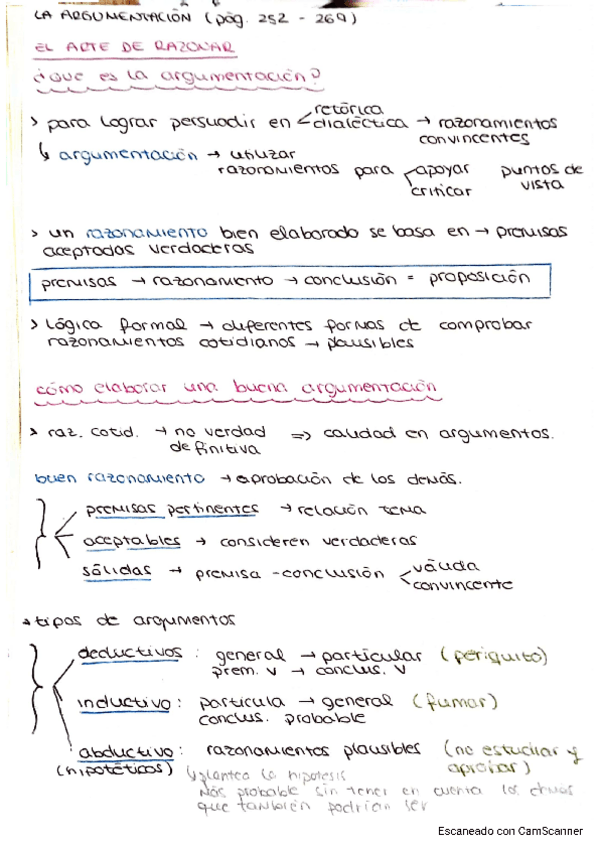 LA ARGUMENTACIÓN (pág. 252 - 269)
EL ARTE DE RAZONAR
¿Que es la argumentación?
> para lograr persuadir en < retórica
dialéctica → razonamientos
convincentes
↳ argumentación → utilizar
razonamientos para < apoyar
criticar
puntos de
vista
> un razonamiento bien elaborado se basa en → premisas
aceptadas verdaderas
premisas → razonamiento → conclusión = proposición
> Lógica formal → diferentes formas de comprobar
razonamientos cotidianos → plausibles
cómo elaborar una buena argumentación
> raz. cotid. → no verdad
definitiva
=> calidad en argumentos.
buen razonamiento → aprobación de los demás.
premisas pertinentes → relación tema
aceptables → consideren verdaderas
sólidas → premisa - conclusión < válida
convincente
→ tipos de argumentos
deductivos : general → particular (periquito)
prem. v → conclus. v
inductivo : particula → general (fumar)
conclus. probable
abductivo : razonamientos plausibles (no estudiar y
aprobar)
(hipotéticos)
↳ plantea la hipotesis
más probable sin tener en cuenta los demás
que también podrían ser
Escaneado con CamScanner